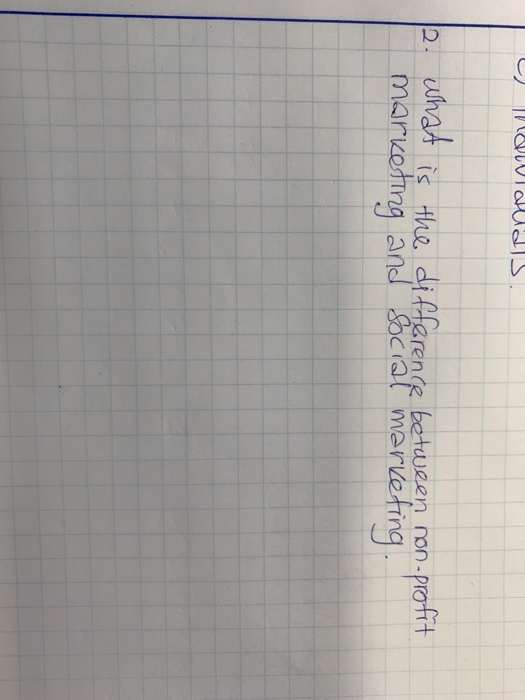 c) individuals.
2. what is the difference between non-profit
marketing and social marketing.